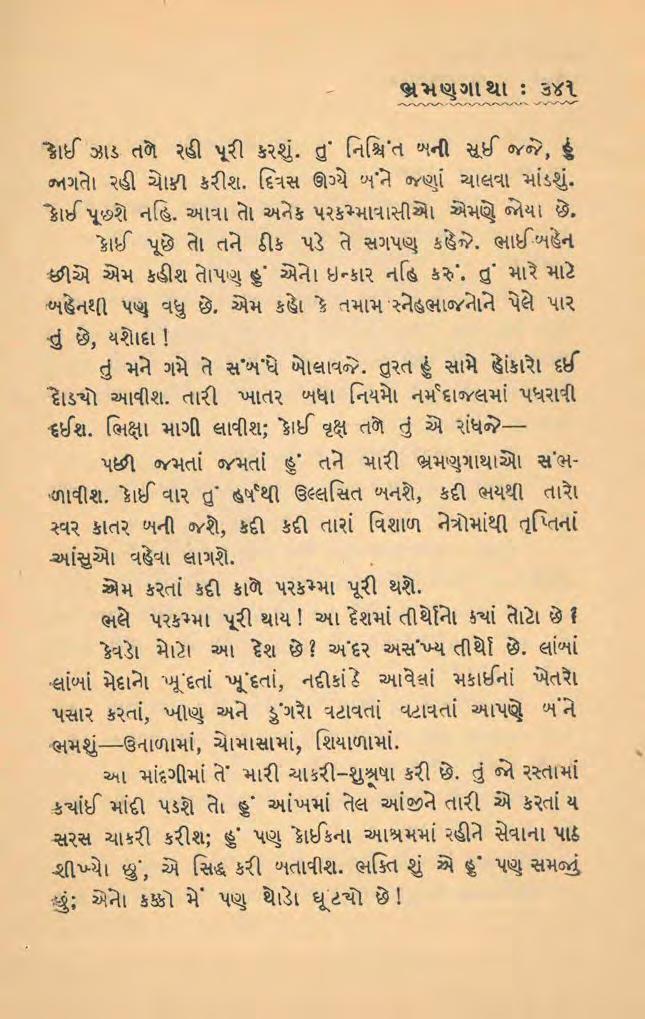 ભ્રમણગાથા : ૩૪૧
કોઈ ઝાડ તળે રહી પૂરી કરશું. તું નિશ્ચિંત બની સૂઈ જજે, હું
જાગતો રહી ચોકી કરીશ. દિવસ ઊગ્યે બંને જણાં ચાલવા માંડશું.
કોઈ પૂછશે નહિ. આવા તો અનેક પરકમ્માવાસીઓ એમણે જોયા છે.
કોઈ પૂછે તો તને ઠીક પડે તે સગપણ કહેજે. ભાઈ-બહેન
છીએ એમ કહીશ તોપણ હું એનો ઇન્કાર નહિ કરું. તું મારે માટે
બહેનથી પણ વધુ છે. એમ કહો કે તમામ સ્નેહભાજનોને પેલે પાર
તું છે, યશોદા !
તું મને ગમે તે સંબંધે બોલાવજે. તુરત હું સામે હોંકારો દઈ
દોડચો આવીશ. તારી ખાતર બધા નિયમો નર્મદાજલમાં પધરાવી
દઈશ. ભિક્ષા માગી લાવીશ; કોઈ વૃક્ષ તળે તું એ રાંધજે—
પછી જમતાં જમતાં હું તને મારી ભ્રમણગાથાઓ સંભ-
ળાવીશ. કોઈ વાર તું હર્ષથી ઉલ્લસિત બનશે, કદી ભયથી તારો
સ્વર કાતર બની જશે, કદી કદી તારાં વિશાળ નેત્રોમાંથી તૃપ્તિનાં
આંસુઓ વહેવા લાગશે.
એમ કરતાં કદી કાળે પરકમ્મા પૂરી થશે.
ભલે પરકમ્મા પૂરી થાય ! આ દેશમાં તીર્થોનો કયાં તોટો છે ?
કેવડો મોટો આ દેશ છે ? અંદર અસંખ્ય તીર્થો છે. લાંબાં
લાંબાં મેદાનો ખૂંદતાં ખૂંદતાં, નદીકાંઠે આવેલાં મકાઈનાં ખેતરો
પસાર કરતાં, ખીણ અને ડુંગરો વટાવતાં વટાવતાં આપણે બંને
ભમશું—ઉનાળામાં, ચોમાસામાં, શિયાળામાં.
આ માંદગીમાં તેં મારી ચાકરી-શુશ્રૂષા કરી છે. તું જો રસ્તામાં
કયાંઈ માંદી પડશે તો હું આંખમાં તેલ આંજીને તારી એ કરતાં ય
સરસ ચાકરી કરીશ; હું પણ કોઈકના આશ્રમમાં રહીને સેવાના પાઠ
શીખ્યો છું, એ સિદ્ધ કરી બતાવીશ. ભક્તિ શું એ હું પણ સમજું
છું; એનો કક્કો મેં પણ થોડો ઘૂંટચો છે !